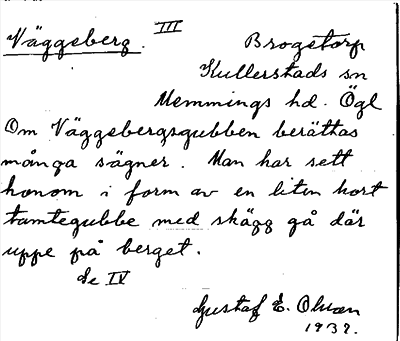 Väggeberg. III Brogetorp
Kullerstads sn
Memmings hd. Ögl
Om Väggebergsgubben berättas
många sägner. Man har sett
honom i form av en liten kort
tomtegubbe med skägg gå där
uppe på berget.
Se IV
Gustaf E. Olsson
1932.